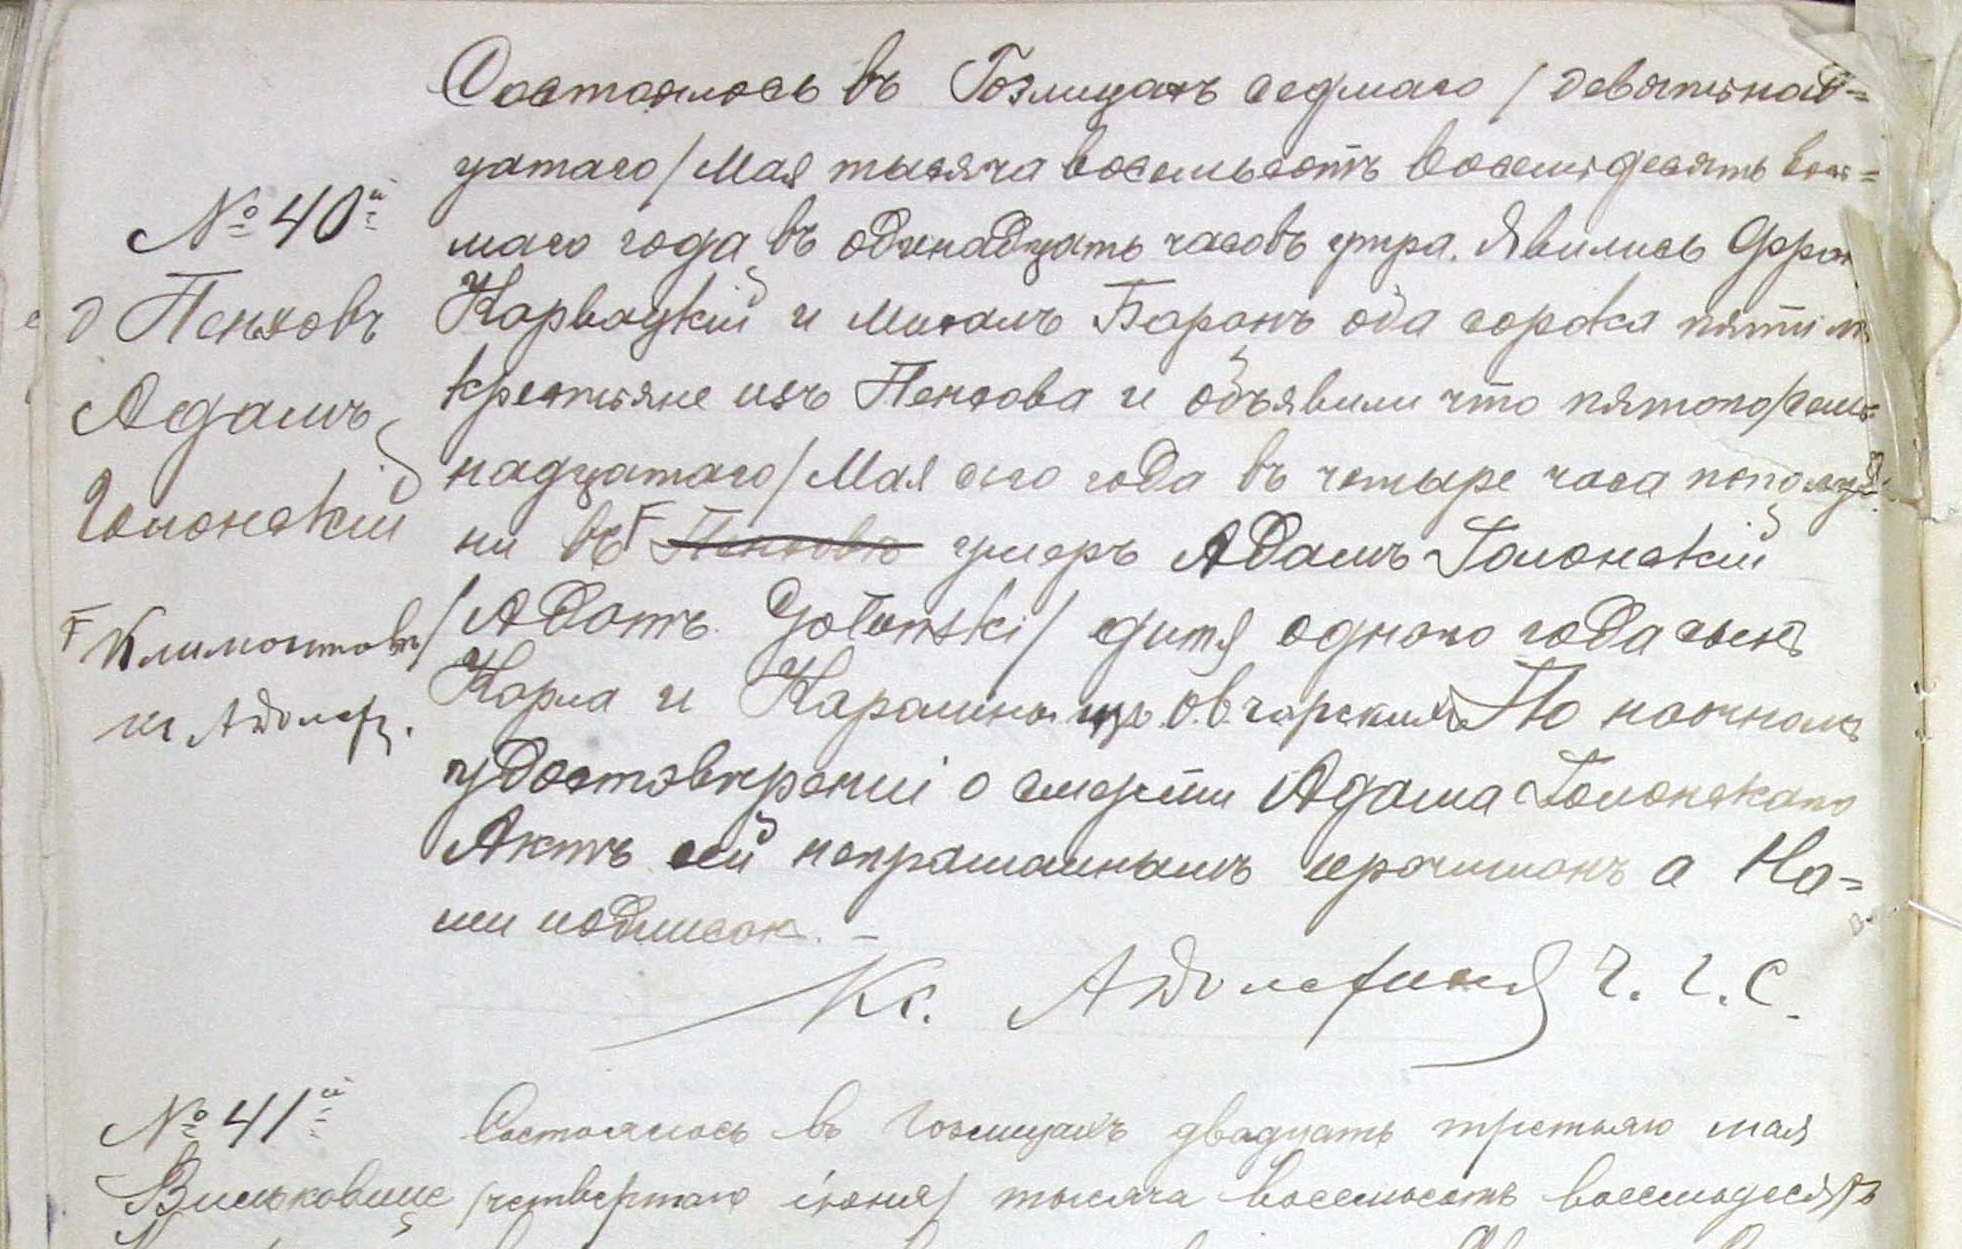 № 40й
Пенховъ
Адамъ
Голонскій
Климонтовѣ
кс Адольф.
Состоялось въ Гозлицахъ седмаго / девятнад=
цатаго / Мая тысяча восемьсотъ восемьдесять вось=
маго года въ одинадцать часовъ утра. Явились Фран
Карвацкій и Михалъ Баранъ оба сорока пяти л
крестьяне изъ Пенхова и объявили что пятого / семь
надцатаго / Мая сего года въ четыре часа пополуд
ни въ Пенховѣ умеръ Адамъ Голонскій
/ Адамъ Gołonski / дитя одного года сынъ
Карла и Каролины из Овчарскихъ По наочномъ
удостовѣреніи о смерти Адама Голонскаго
Актъ сей неграматнымъ прочитанъ а На=
ми подписан. –
Кс. Ч. Г. С.
№ 41й
Вильковице
Состоялось въ Гозлицахъ двадцать третьяго мая
/ четвертаго іюня / тысяча восемьсотъ восемьдесятъ